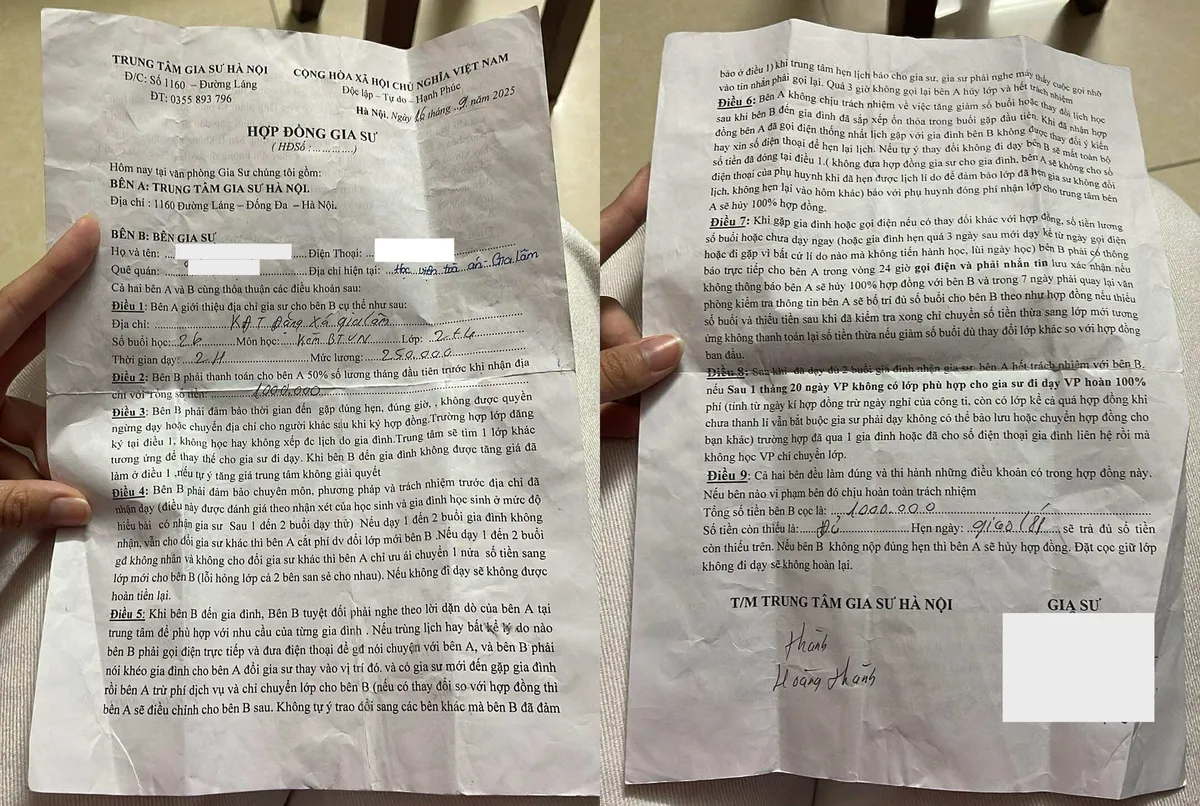 TRUNG TÂM GIA SƯ HÀ NỘI
Đ/C: Số 1160 – Đường Láng
ĐT: 0355 893 796
CỘNG HÒA XÃ HỘI CHỦ NGHĨA VIỆT NAM
Độc lập – Tự do – Hạnh Phúc
Hà Nội, Ngày 16 tháng 9 năm 2025
HỢP ĐỒNG GIA SƯ
( HĐSố :..............)
Hôm nay tại văn phòng Gia Sư chúng tôi gồm:
BÊN A: TRUNG TÂM GIA SƯ HÀ NỘI.
Địa chỉ : 1160 Đường Láng – Đống Đa – Hà Nội.
BÊN B: BÊN GIA SỰ
Họ và tên: Điện Thoại:
Quê quán: Địa chỉ hiện tại: Học viện toà án - Gia lâm
Cả hai bên A và B cùng thỏa thuận các điều khoản sau:
Điều 1: Bên A giới thiệu địa chỉ gia sư cho bên B cụ thể như sau:
Địa chỉ: KĐT Đặng Xá gia lâm
Số buổi học: 2b Môn học: Kèm BTVN Lớp: 2 + 4
Thời gian dạy: 2H Mức lương: 250.000
Điều 2: Bên B phải thanh toán cho bên A 50% số lương tháng đầu tiên trước khi nhận địa
chỉ với tổng số tiền: 1000.000
Điều 3: Bên B phải đảm bảo thời gian đến gặp đúng hẹn, đúng giờ, , không được quyền
ngừng dạy hoặc chuyển địa chỉ cho người khác sau khi ký hợp đồng.Trường hợp lớp đăng
ký tại điều 1, không học hay không xếp đc lịch do gia đình.Trung tâm sẽ tìm 1 lớp khác
tương ứng để thay thế cho gia sư đi dạy. Khi bên B đến gia đình không được tăng giá đã
làm ở điều 1 .nếu tự ý tăng giá trung tâm không giải quyết
Điều 4: Bên B phải đảm bảo chuyên môn, phương pháp và trách nhiệm trước địa chỉ đã
nhận dạy (điều này được đánh giá theo nhận xét của học sinh và gia đình học sinh ở mức độ
hiểu bài có nhận gia sư Sau 1 đến 2 buổi dạy thử) Nếu dạy 1 đến 2 buổi gia đình không
nhận, vẫn cho đổi gia sư khác thì bên A cắt phí dv đổi lớp mới bên B .Nếu dạy 1 đến 2 buổi
gđ không nhận và không cho đổi gia sư khác thì bên A chỉ ưu ái chuyển 1 nửa số tiền sang
lớp mới cho bên B (lỗi hỏng lớp cả 2 bên san sẻ cho nhau). Nếu không đi dạy sẽ không được
hoàn tiền lại.
Điều 5: Khi bên B đến gia đình, Bên B tuyệt đối phải nghe theo lời dặn dò của bên A tại
trung tâm để phù hợp với nhu cầu của từng gia đình . Nếu trùng lịch hay bất kể lý do nào
bên B phải gọi điện trực tiếp và đưa điện thoại để gđ nói chuyện với bên A, và bên B phải
nói khéo gia đình cho bên A đổi gia sư thay vào vị trí đó. và có gia sư mới đến gặp gia đình
rồi bên A trừ phí dịch vụ và chỉ chuyển lớp cho bên B (nếu có thay đổi so với hợp đồng thì
bên A sẽ điều chỉnh cho bên B sau. Không tự ý trao đổi sang các bên khác mà bên B đã đảm
bảo ở điều 1) khi trung tâm hẹn lịch báo cho gia sư. gia sư phải nghe máy thấy cuộc gọi nhỡ
vào tin nhắn phải gọi lại. Quá 3 giờ không gọi lại bên A hủy lớp và hết trách nhiệm
Điều 6: Bên A không chịu trách nhiệm về việc tăng giảm số buổi hoặc thay đổi lịch học
sau khi bên B đến gia đình đã sắp xếp ổn thỏa trong buổi gặp đầu tiên. Khi đã nhận hợp
đồng bên A đã gọi điện thống nhất lịch gặp với gia đình bên B không được thay đổi ý kiến
hay xin số điện thoại để hẹn lại. Nếu tự ý thay đổi không đi dạy bên B sẽ mất toàn bộ
số tiền đã đóng tại điều 1.( không đưa hợp đồng gia sư cho gia đình, bên A không cho số
điện thoại của phụ huynh khi đã hẹn được lịch lí do để đảm bảo lớp đã hẹn gia sư không đổi
lịch, không hẹn lại vào hôm khác) báo với phụ huynh đóng phí nhận lớp cho trung tâm bên
A sẽ hủy 100% hợp đồng.
Điều 7: Khi gặp gia đình hoặc gọi điện nếu có thay đổi khác với hợp đồng, số tiền lương
số buổi hoặc chưa dạy ngay (hoặc gia đình hẹn quá 3 ngày sau mới dạy kể từ ngày gọi điện
hoặc đi gặp vì bất cứ lí do nào mà không tiến hành học, lùi ngày học) bên B phải có thông
báo trực tiếp cho bên A trong vòng 24 giờ gọi điện và phải nhắn tin lưu xác nhận nếu
không thông báo bên A sẽ hủy 100% hợp đồng với bên B và trong 7 ngày phải quay lại văn
phòng kiểm tra thông tin bên A sẽ bố trí đủ số buổi cho bên B theo như hợp đồng nếu thiếu
số buổi và thiếu tiền sau khi đã kiểm tra xong chỉ chuyển số tiền thừa sang lớp mới tương
ứng không thanh toán lại số tiền thừa nếu giảm số buổi dù thay đổi lớp khác so với hợp đồng
ban đầu.
Điều 8: Sau khi đã dạy đủ 2 buổi gia đình nhận gia sư bên A hết trách nhiệm với bên B.
nếu Sau 1 tháng 20 ngày VP không có lớp phù hợp cho gia sư đi dạy VP hoàn 100%
phí (tính từ ngày kí hợp đồng trừ ngày nghỉ của công ti, còn có lớp kể cả quá hợp đồng khi
chưa thanh lí vẫn bắt buộc gia sư phải dạy không có thể bảo lưu hoặc chuyển hợp đồng cho
bạn khác) trường hợp đã qua 1 gia đình hoặc đã cho số điện thoại gia đình liên hệ rồi mà
không học VP chỉ chuyển lớp.
Điều 9: Cả hai bên đều làm đúng và thi hành những điều khoản có trong hợp đồng này.
Nếu bên nào vi phạm bên đó chịu hoàn toàn trách nhiệm
Tổng số tiền bên B cọc là: 1000.000
Số tiền còn thiếu là: Đủ Hẹn ngày: sẽ trả đủ số tiền
còn thiếu trên. Nếu bên B không nộp đúng hẹn thì bên A sẽ hủy hợp đồng. Đặt cọc giữ lớp
không đi dạy sẽ không hoàn lại.
T/M TRUNG TÂM GIA SƯ HÀ NỘI
GIA SƯ
Thành
Hoàng Thành